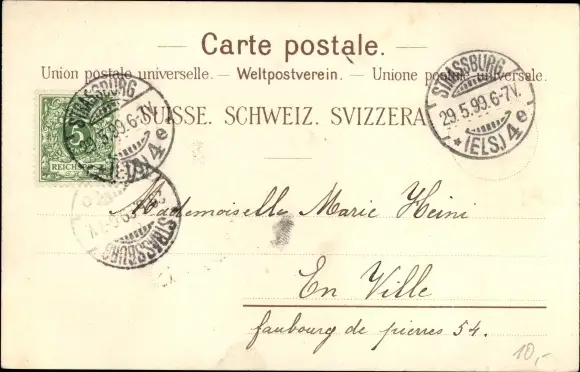 Carte postale.
Union postale universelle. — Weltpostverein. — Unione postale universale.
SUISSE. SCHWEIZ. SVIZZERA
5
REICHSPOST
STRASSBURG
29.5.99.6-7V.
*(ELS.)4e
STRASSBURG
29.5.99.6-7V.
*(ELS.)4e
STRASSBURG
Mademoiselle Marie Heini
En Ville
faubourg de pierres 54.
10,-